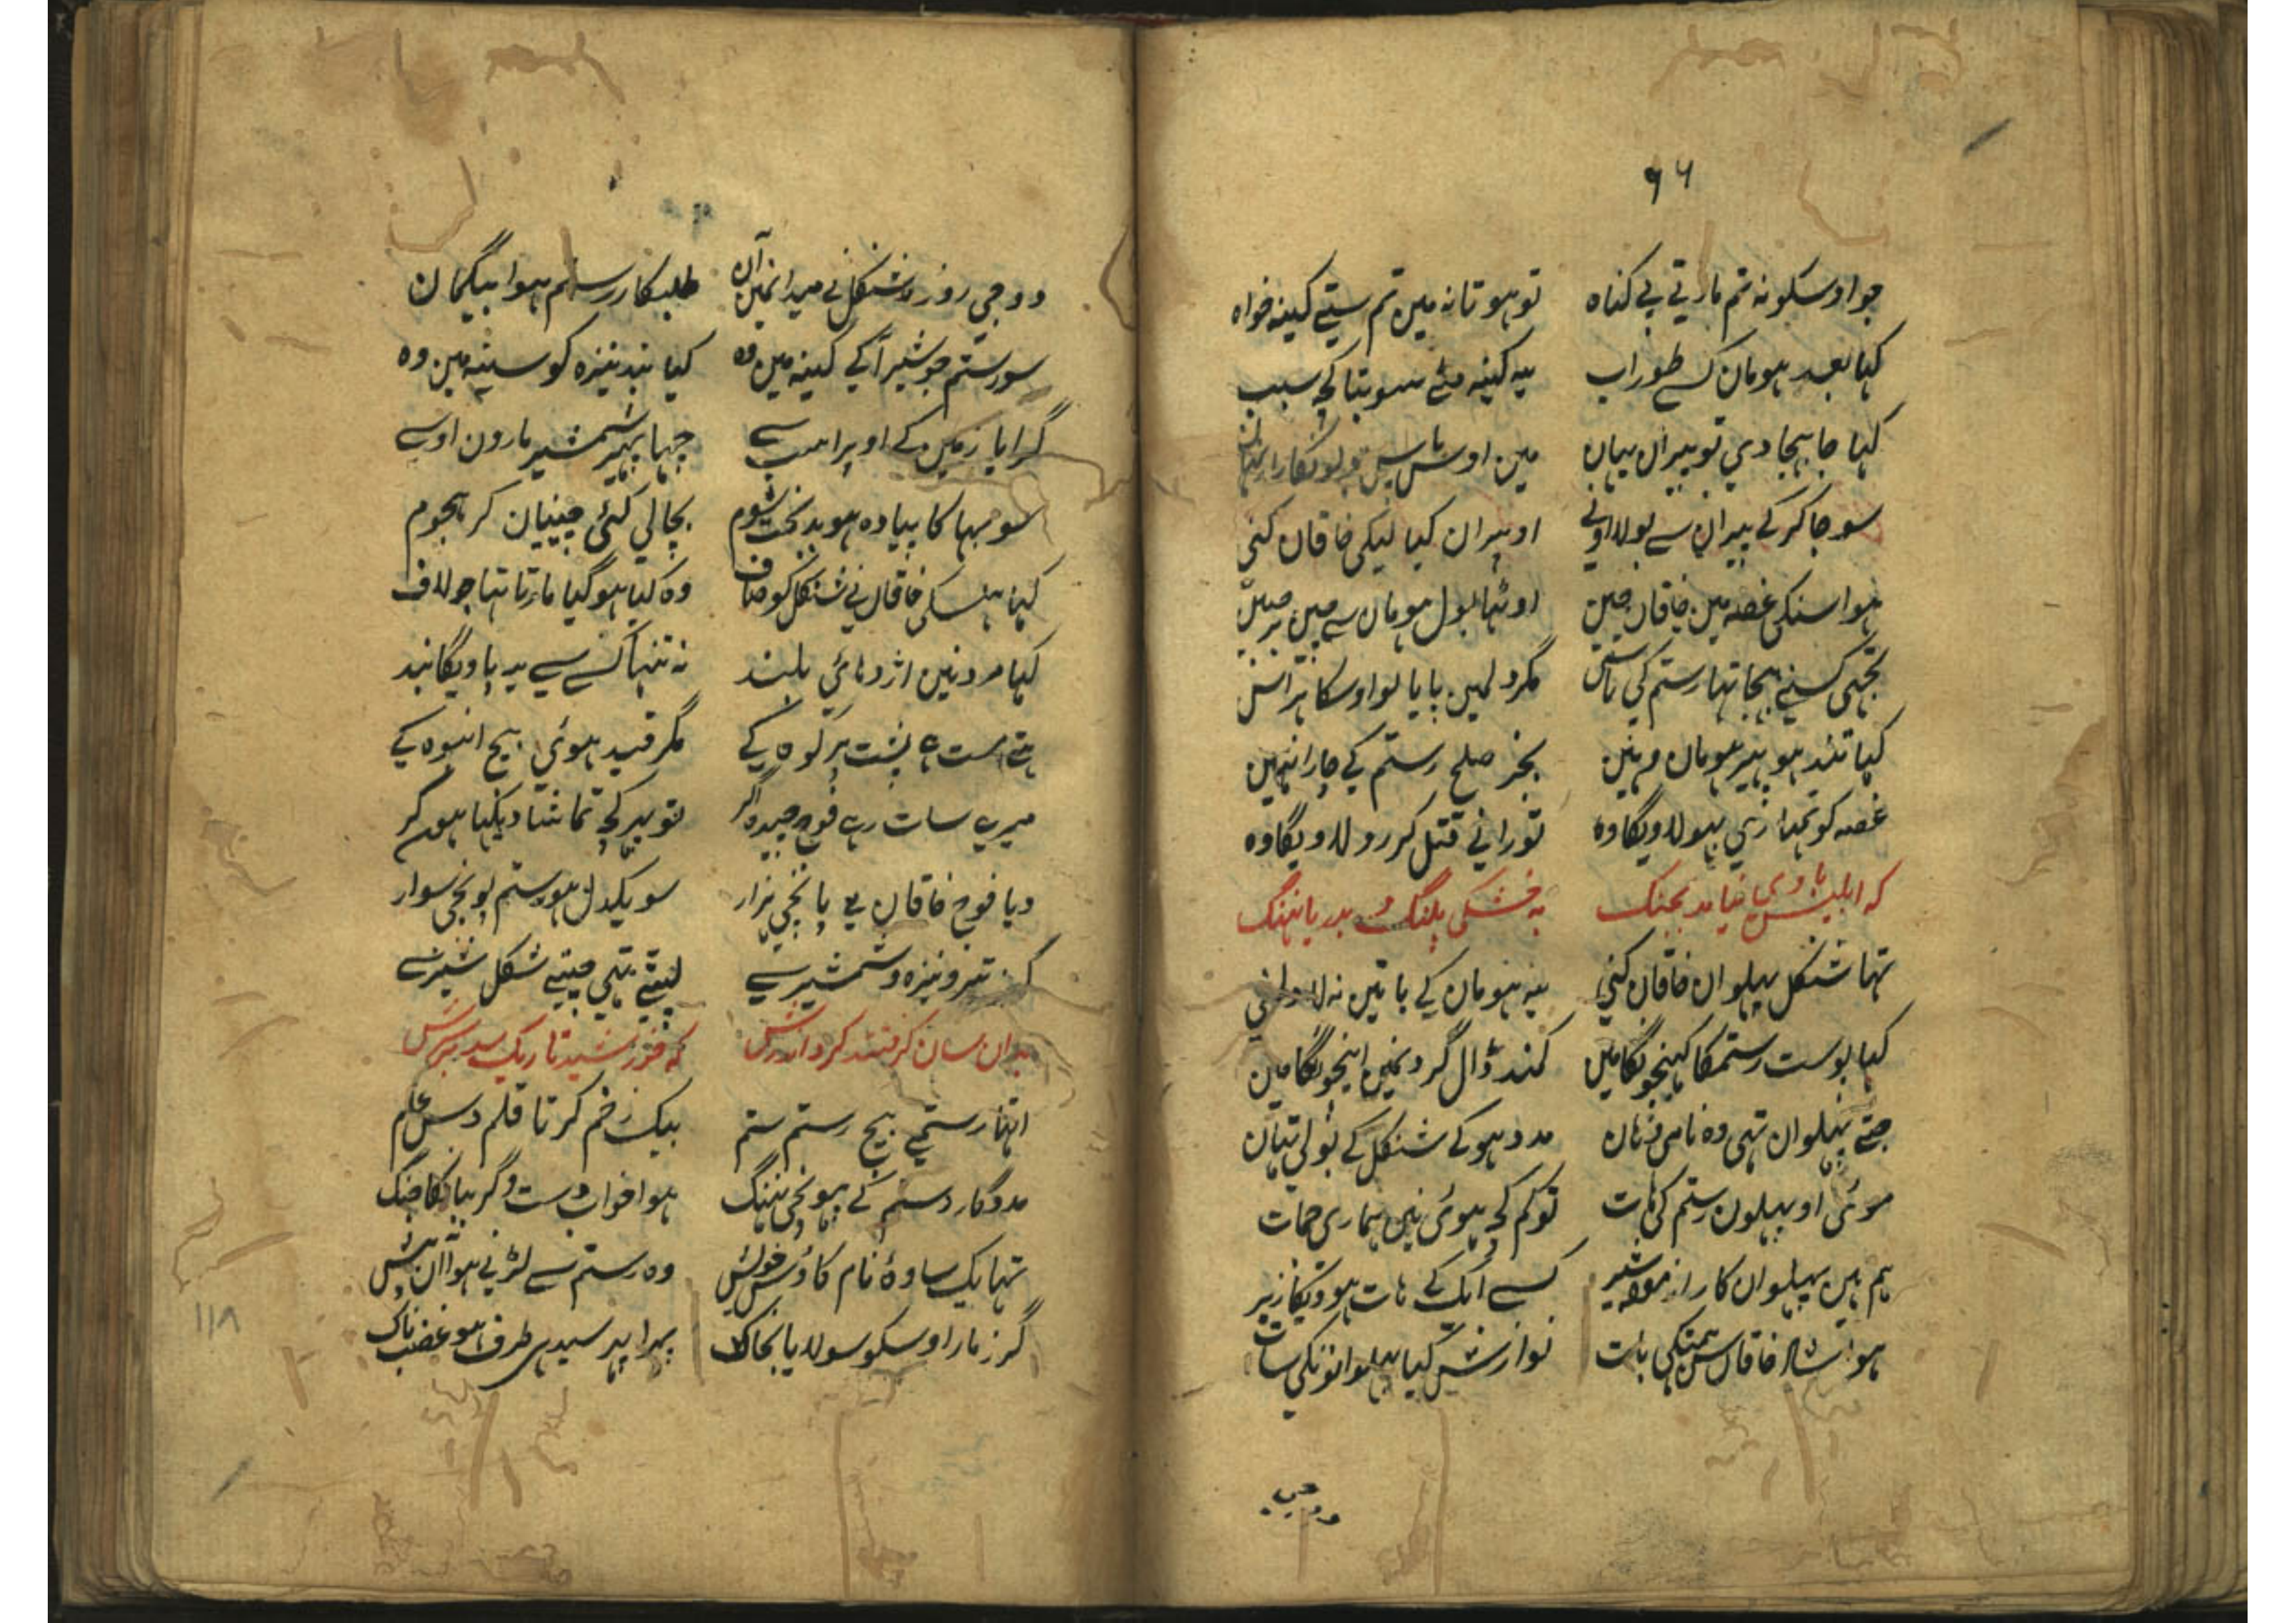 ٩٦
جو اوسکو نہ تم مارتے بے کناہ تو ہوتا نہ مین تم ستے کینہ خواہ
کہا بعد ہومان کسے طور اب یہ کینہ مٹے سو بتا کچہ سبب
کہا جا بہجا دی تو پیران یہان مین اوس پاس
سو جا کر کے پیران سے بولا اونے او پیران کیا لیکی خاقان کنی
ہوا سنکی غصہ مین خاقان چین اوٹہا بول ہومان سے چین بر جبین
تجہی کسنے بہجا تہا رستم کی پاس مگر دلمین پایا تو اوسکا ہراس
کہا تند ہو پیر ہومان وہین بجز صلح رستم کے چارا نہین
غصہ کو تمہاری بہولاویگا وہ تورانی قتل کر رولاویگا وہ
کہ ابلیش با وی نیاید بجنگ بہ خشکی پلنگ و بدریا نہنگ
تہا شنکل پہلوان خاقان کنی یہ ہومان کے باتین نہ لا
کہا پوست رستمکا کہینچونگا مین کمند ڈال گردنمین اینچونگا مین
جتے پہلوان تہی وہ نامی زمان مدد ہو کے شنکل کے بولی تیان
موئی او پہلون رستم کی ہات تو کم کچہ ہوئی نین ہماری جمات
ہم ہین پہلوان کار ازمودہ شیر کسے ایک کے ہات ہوویگا زیر
ہوا شاد خاقان سن ہمتکی بات نوازش کیا پہلوانونکی سات
دوجی
دوجی روز شنکل نے میدانمین آن طلبکار رستم ہوا بیگمان
سو رستم جو شیر آکے کینہ مین وہ کیا بند نیزہ کو سینہ مین وہ
گرایا زمین کے اوپر اسپ سے چہا پہیر شمشیر مارون اوسے
سو بہاکا پیادہ ہو بدبخت شوم بچالی گئی چینیان کر ہجوم
کہا ہنسکی خاقان نے شنکل کو صاف وہ کیا ہو گیا مارتا تہا جو لاف
کہا مرد نین اژدہائی بلند نہ تنہا کسے سے یہ پاویگا بند
ہتے مست ہے پشت پر کوہ کے مگر قید ہوئی بیچ انبوہ کے
میرے سات رہے فوج چیدہ اگر تو پیر کچہ تماشا دیکہا ہون کر
دیا فوج خاقان نے پانچ ہزار سو یکدل ہو رستم پو نچی سوار
گرز تیر و نیزہ و شمشیر سے لپیٹے تہی چیتے شکل شیر سے
بدان سان گرفتند گرد اندرش کہ خورشید تاریک شد بر سرش
اتہا رستمے بیچ رستم ستم بیک زخم کرتا قلم دس علم
مددگار رستم کے پہونچی نہنگ ہوا خواب دست و گریبانکا جنگ
تہا یک ساوہ نام کاوس خویش وہ رستم سے لڑنے ہوا آن پیش
گرز مار اوسکو سولایا بخاک پہرا پہر سیدہی طرف ہو غضبناک
١١٨